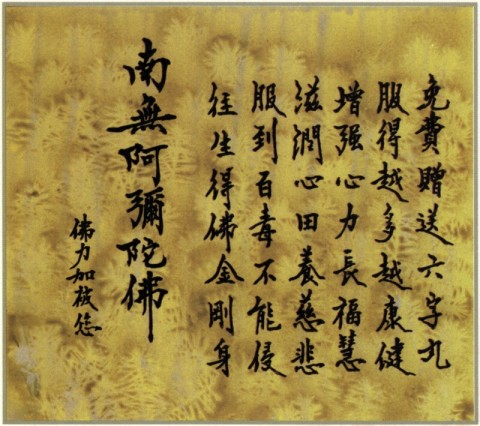 免費贈送六字丸
服得越多越康健
增强心力長福慧
滋潤心田養慈悲
服到百毒不能侵
往生得佛金剛身
南無阿彌陀佛
佛力加被您